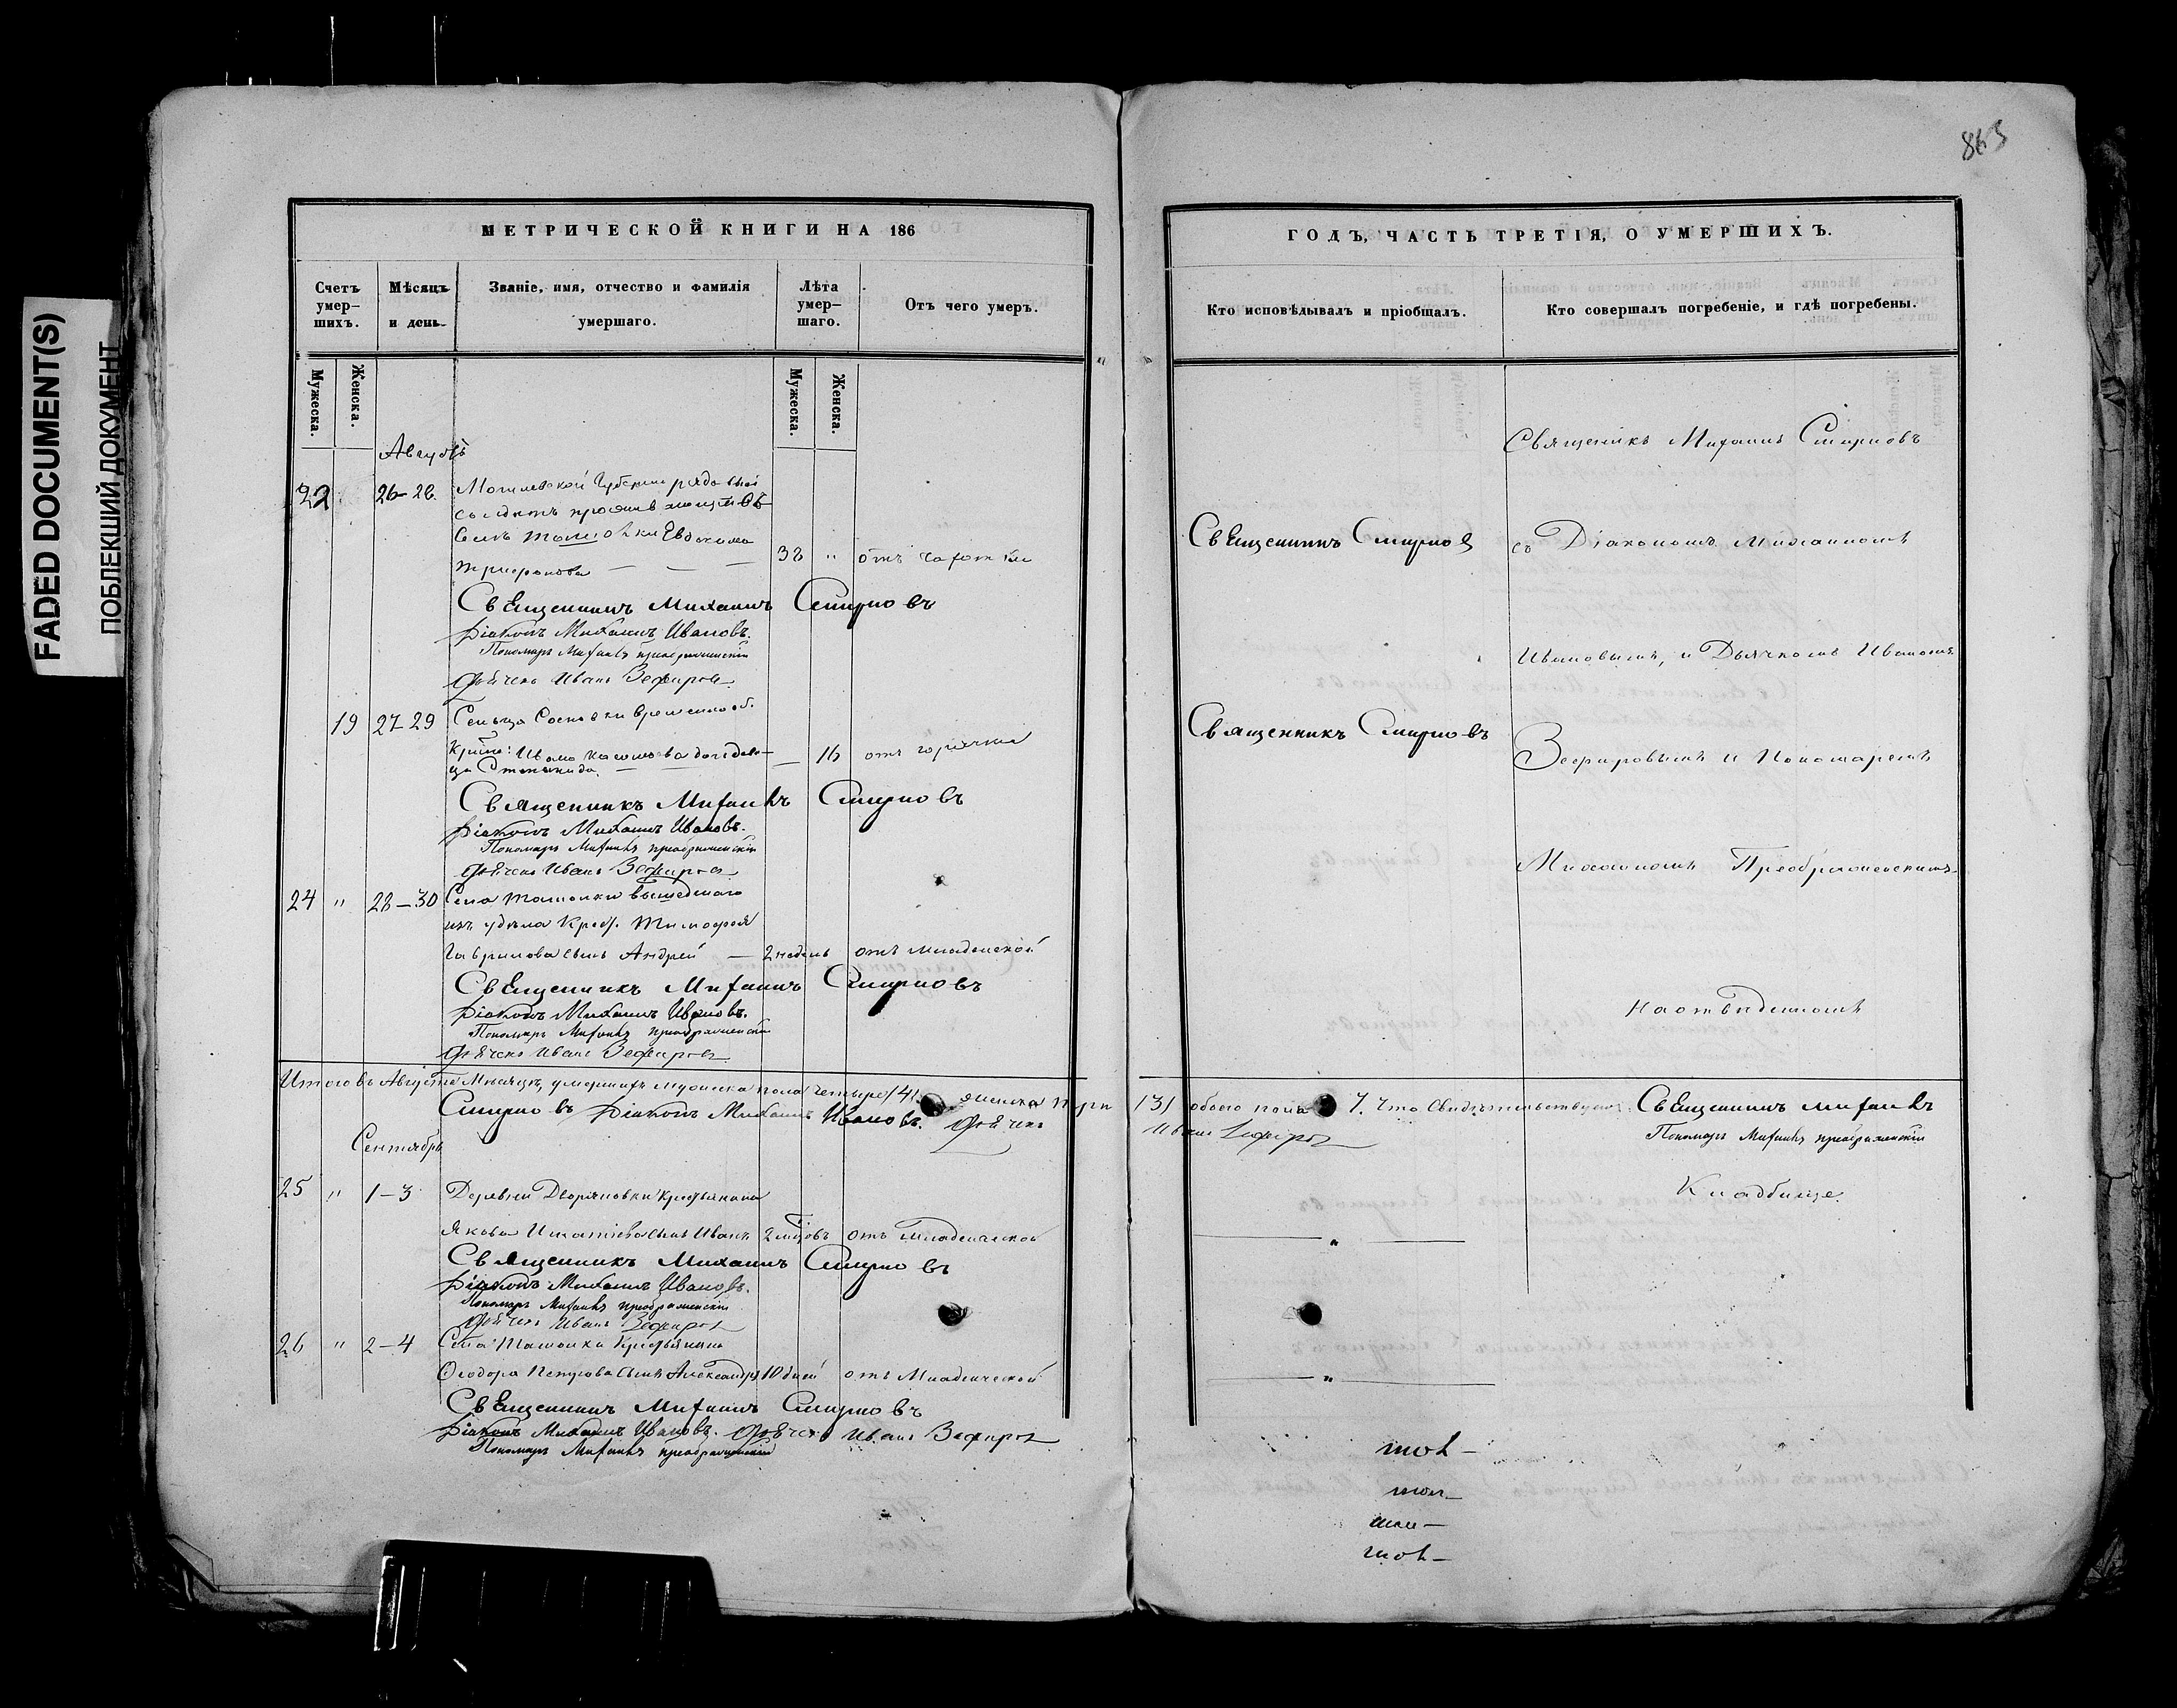 FADED DOCUMENT(S)
ПОБЛЕКШИЙ ДОКУМЕНТ
865
МЕТРИЧЕСКОЙ КНИГИ НА 186
Счетъ умер-шихъ.
Мѣсяцъ и день.
Званіе, имя, отчество и фамилія умершаго.
Лѣта умер-шаго.
Отъ чего умеръ.
Мужеска.
Женска.
Мужеска.
Женска.
Августъ
22 26-28. Могилевской Губерніи рядовый
солдатъ
Евдокимъ
Трифоновъ — — — 38 " отъ чахотки
Священникъ Михаилъ Смирновъ
Діаконъ Михаилъ Ивановъ.
Пономарь Михаилъ Преображенскій
Дьячекъ Иванъ Зефировъ
19 27-29 Сельца Сосновки временно об.
Крест: Ивана
— 16 отъ горячки
Священникъ Михаилъ Смирновъ
Діаконъ Михаилъ Ивановъ.
Пономарь Михаилъ Преображенскій
Дьячекъ Иванъ Зефировъ
24 " 28-30 Села вышедшаго
изъ удѣла Крест. Тимофея
Гаврилова сынъ Андрей — 2 недѣль отъ младенской
Священникъ Михаилъ Смирновъ
Діаконъ Михаилъ Ивановъ.
Пономарь Михаилъ Преображенскій
Дьячекъ Иванъ Зефировъ
Итого въ Августѣ Мѣсяцѣ, умершихъ мужеска пола четыре /4/. женска три
Смирновъ Діаконъ Михаилъ Ивановъ. Дьячекъ
Сентябрь
25 " 1-3 Деревни Дворяновки Крестьянина
Якова Игнатіева сынъ Иванъ 2 отъ младенческой
Священникъ Михаилъ Смирновъ
Діаконъ Михаилъ Ивановъ.
Пономарь Михаилъ Преображенскій
Дьячекъ Иванъ Зефировъ
26 " 2-4 Села Крестьянина
Ѳеодора Петрова сынъ Александръ 10 дней отъ Младенческой
Священникъ Михаилъ Смирновъ
Діаконъ Михаилъ Ивановъ. Дьячекъ Иванъ Зефировъ
Пономарь Михаилъ Преображенскій
ГОДЪ, ЧАСТЬ ТРЕТІЯ, О УМЕРШИХЪ.
Кто исповѣдывалъ и пріобщалъ.
Кто совершалъ погребеніе, и гдѣ погребены.
Священникъ Михаилъ Смирновъ
Священникъ Смирновъ
съ Діакономъ Михаиломъ
Ивановымъ, и Дьячкомъ Иваномъ
Священникъ Смирновъ
Зефировымъ и Пономаремъ
Михаиломъ Преображенскимъ
на отведенномъ
/3/ обоего пола 7. Что свидѣтельствуютъ: Священникъ Михаилъ
Иванъ Зефировъ
Пономарь Михаилъ Преображенскій
Кладбище.
— " —
— " —